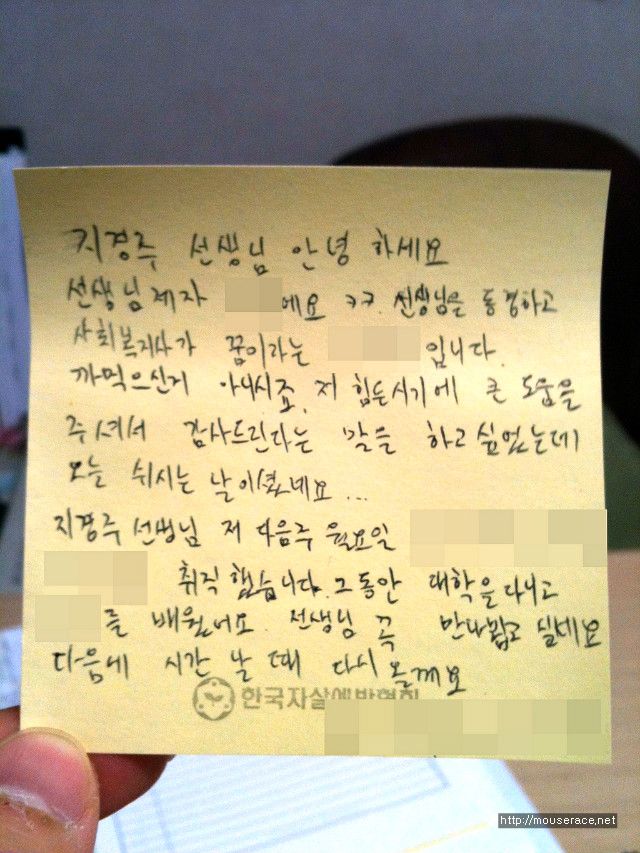 지경주 선생님 안녕 하세요
선생님제자 에요 ㅋㅋ. 선생님을 동경하고
사회복지사가 꿈이라는 입니다.
까먹으신거 아니시죠. 저 힘든시기에 큰 도움을
주셔서 감사드린다는 말을 하고싶었는데
오늘 쉬시는 날이셨네요...
지경주선생님 저 다음주 월요일
취직했습니다. 그동안 대학을 다니고
를 배웠어요. 선생님 꼭 만나뵙고 싶네요
다음에 시간 날 때 다시 올께요
한국자살예방협회
http://mouserace.net